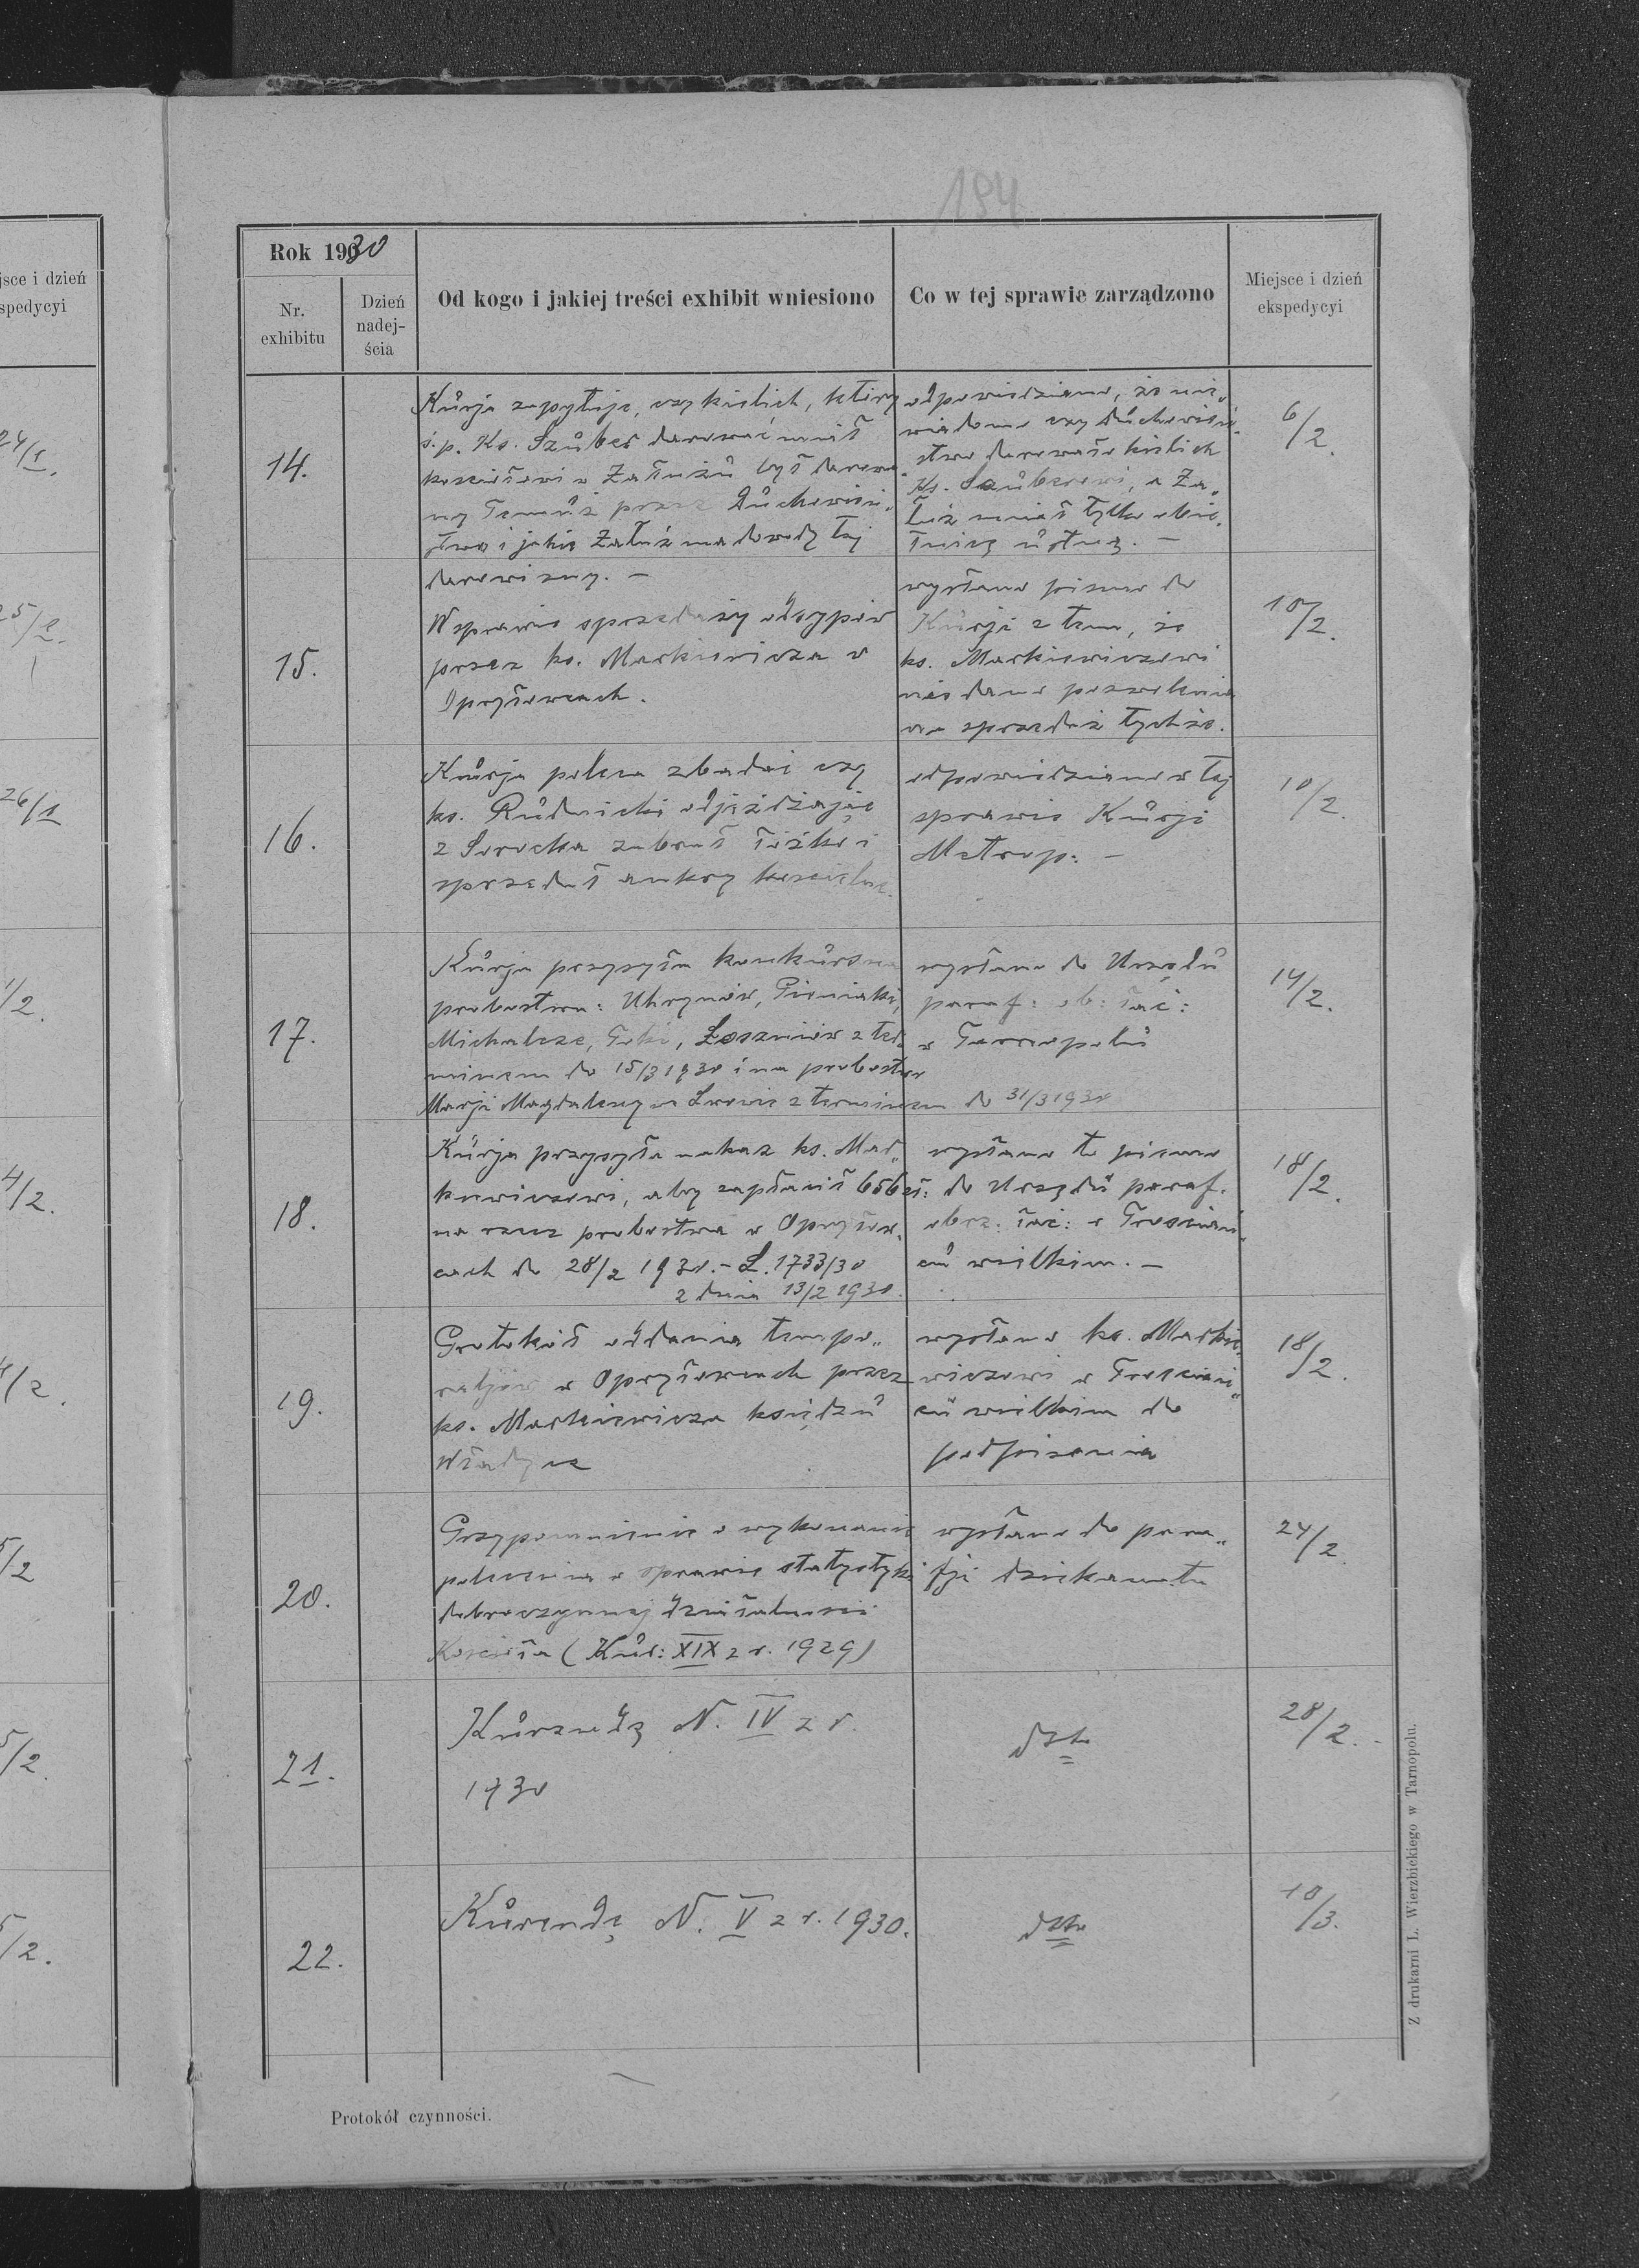 194
jsce i dzień
spedycyi
24/1.
25/2.
26/1
1/2.
4/2.
4/2.
5/2
5/2.
5/2.
Rok 1930
Nr.
exhibitu
Dzień
nadej-
ścia
Od kogo i jakiej treści exhibit wniesiono
Co w tej sprawie zarządzono
Miejsce i dzień
ekspedycyi
14.
Kurja zapytuje, czy kielich, który
ś.p. Ks. Szuber darować miał
kościołowi w Załużu był darowa
ny Temuż przez Duchowień„
stwo i jakie Załuż ma dowody tej
darowizny. –
odpowiedziano, że nie„
wiadomo czy Duchowień„
stwo darowało kielich
Ks. Szuberowi, a Za„
łuż miał tylko obie„
tnicę ustną. –
6/2.
15.
W sprawie sprzedaży odsypów
przez ks. Markiewicza w
Opryłowcach.
wysłano pismo do
Kurji z tem, że
ks. Markiewiczowi
nie dano pozwolenia
na sprzedaż tychże.
10/2.
16.
Kurja poleca zbadać czy
ks. Rudnicki odjeżdżając
z Sorocka zabrał łóżko i
sprzedał ankry kościelne.
odpowiedziano w tej
sprawie Kurji
Metrop: –
10/2.
17.
Kurja przysyła konkurs na
probostwa: Uhrynów, Pieniaki,
Michalcze, Toki, Łoszniów z ter„
minem do 15/3 1930 i na probostwo
Marji Magdaleny we Lwowie z terminem do 31/3 1930
wysłano do Urzędu
paraf: ob: łać:
w Tarnopolu
14/2.
18.
Kurja przysyła nakaz ks. Mar„
kiewiczowi, aby zapłacił 656 zł:
na rzecz probostwa w Opryłow„
cach do 28/2 1930. – L. 1733/30
z dnia 13/2 1930.
wysłano to pismo
do Urzędu paraf.
obrz: łać: w Trościań„
cu wielkim. –
18/2.
19.
Protokół oddania tempo„
raljów w Opryłowcach przez
ks. Markiewicza księdzu
wysłano ks. Markie„
wiczowi w Trościań„
cu wielkim do
podpisania
18/2.
20.
Przypomnienie o wykonanie
polecenia w sprawie statystyki
dobroczynnej działalności
Kościoła (Kur: XIX z r. 1929)
wysłano do para„
fji dziekanatu
24/2.
21.
Kurendę N. IV z r.
1930
dtto
28/2. -
22.
Kurendę N. V z r. 1930.
dtto
10/3.
Z drukarni L. Wierzbickiego w Tarnopolu.
Protokół czynności.